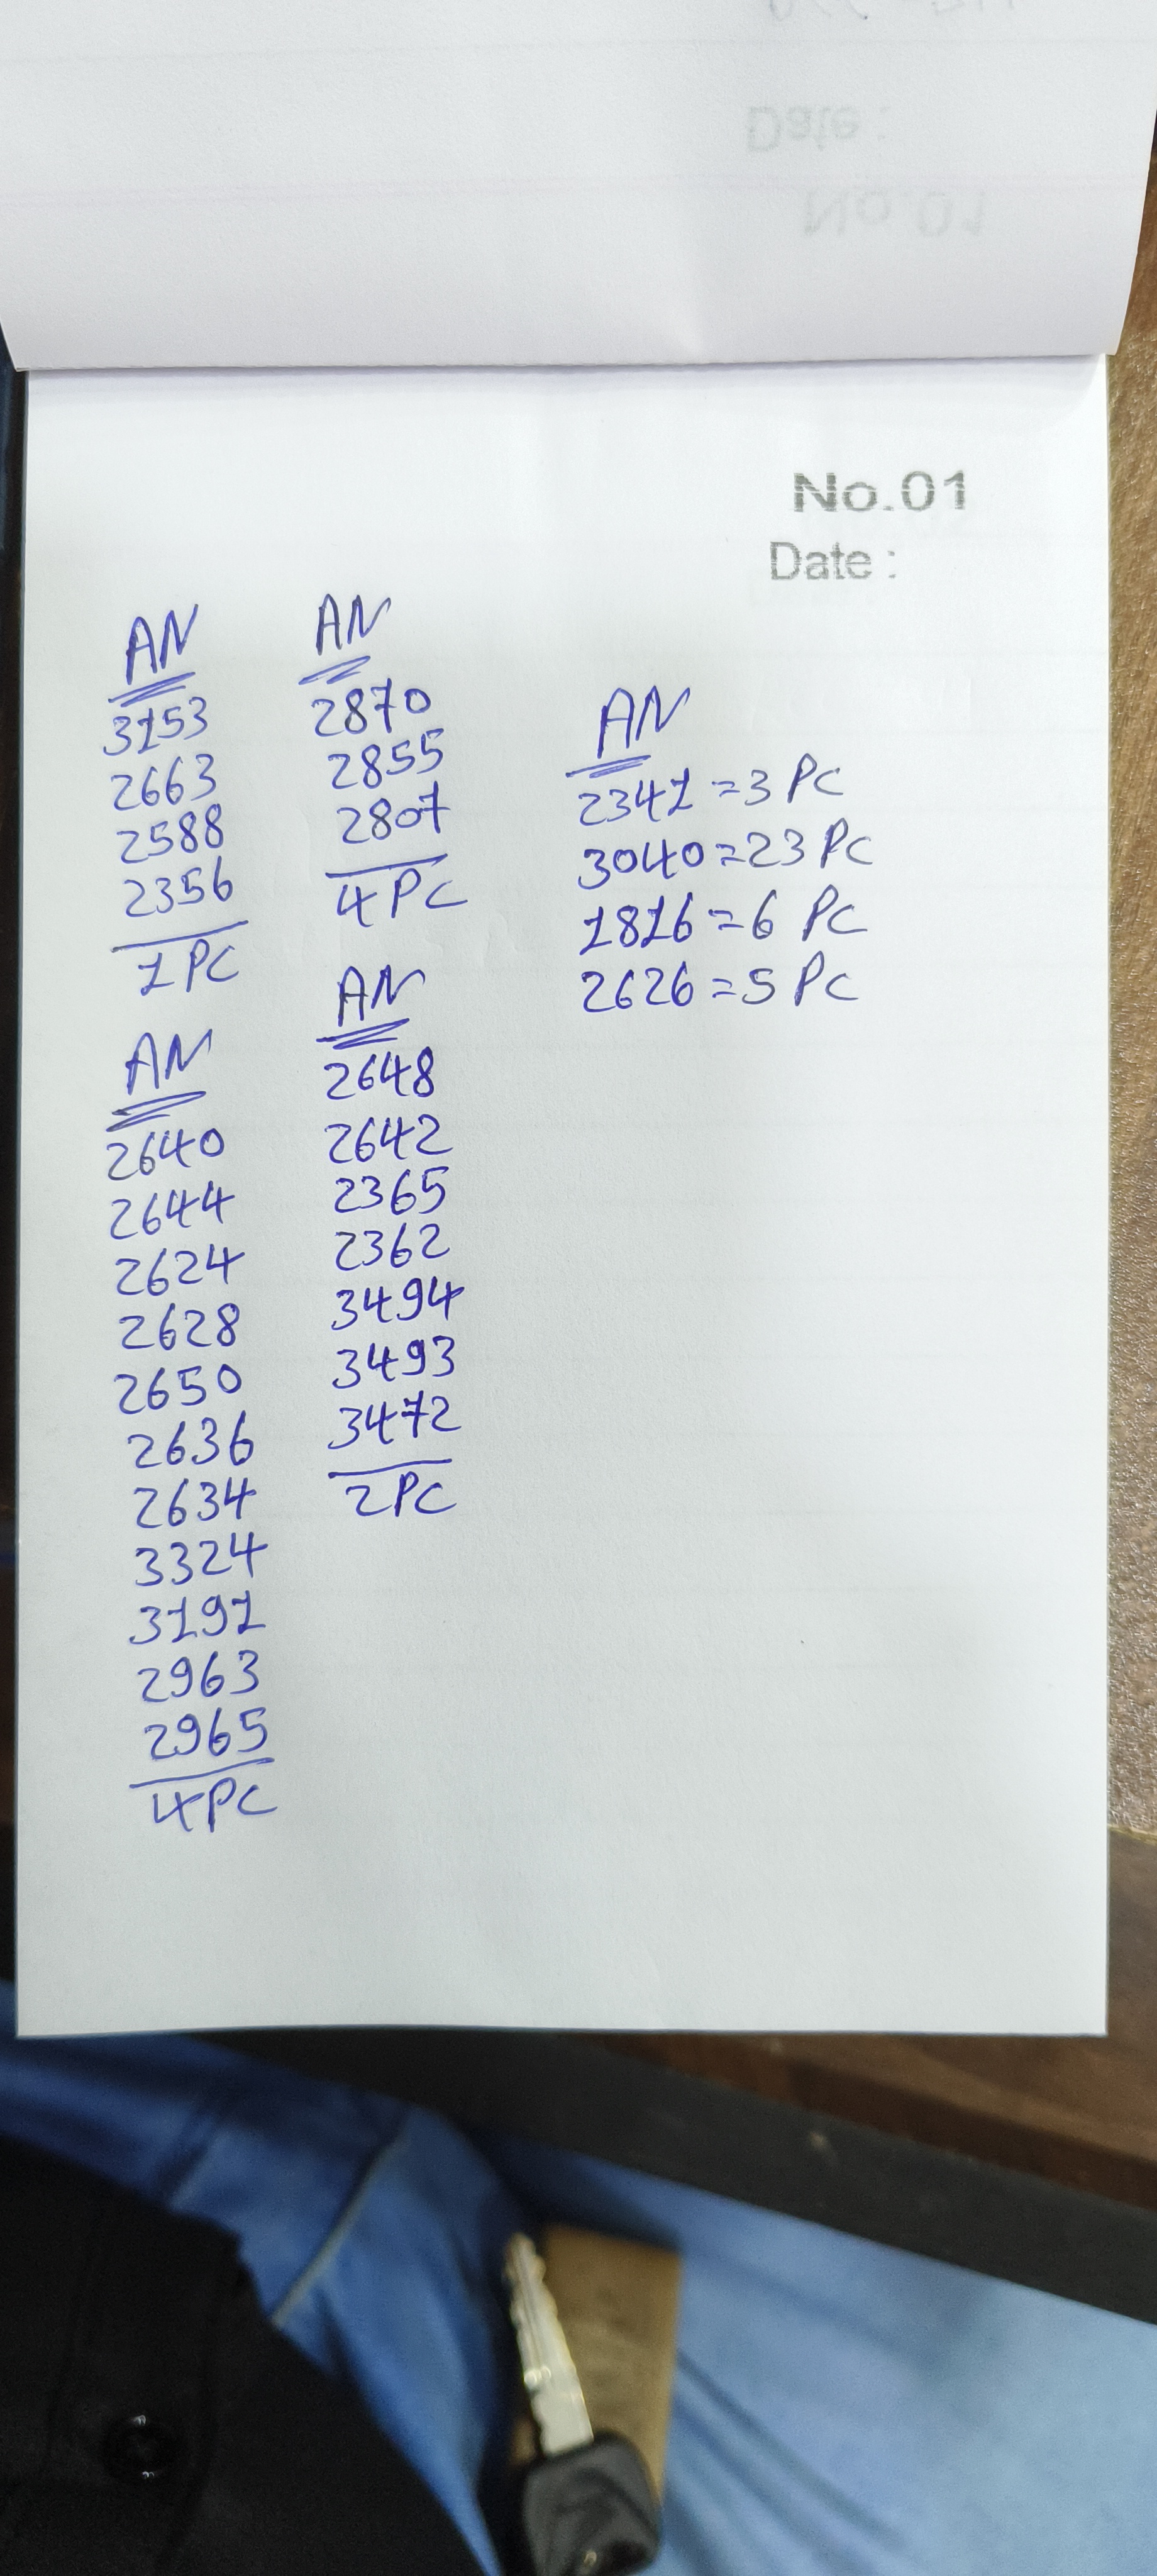 No.01
Date :
AN
3153
2663
2588
2356
1 PC
AN
2640
2644
2624
2628
2650
2636
2634
3324
3191
2963
2965
4 PC
AN
2870
2855
2807
4 PC
AN
2648
2642
2365
2362
3494
3493
3472
2 PC
AN
2341 = 3 PC
3040 = 23 PC
1816 = 6 PC
2626 = 5 PC